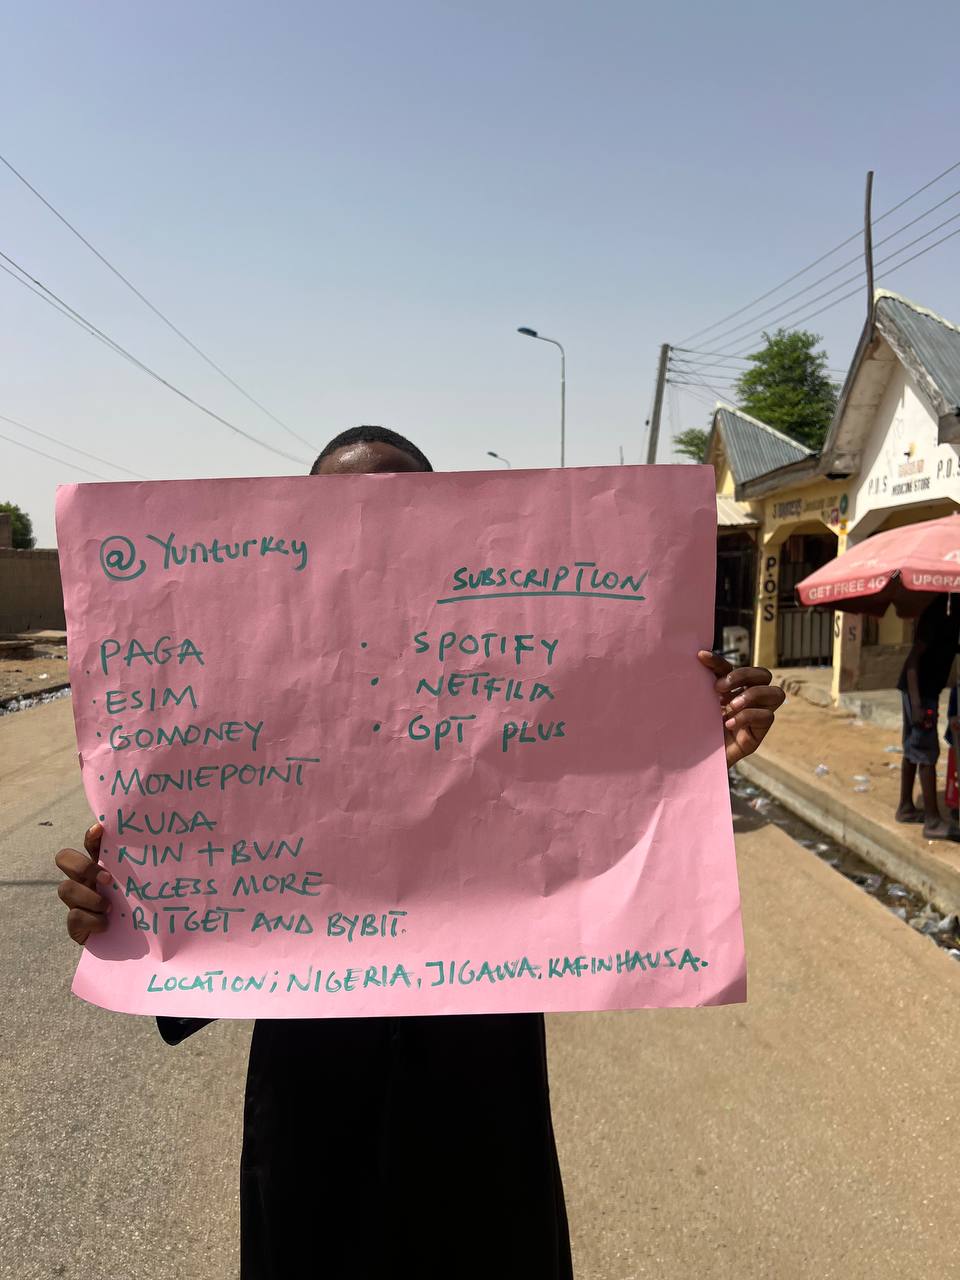 @ Yunturkey
SUBSCRIPTION
PAGA
· ESIM
· GOMONEY
· MONIEPOINT
· KUDA
· NIN + BVN
· ACCESS MORE
· BITGET AND BYBIT.
· SPOTIFY
· NETFLIX
· GPT PLUS
LOCATION; NIGERIA, JIGAWA, KAFIN HAUSA.
P.O.S
MEDICINE STORE
P.O.S
P.O.S
GET FREE 4G
UPGRA
S
S